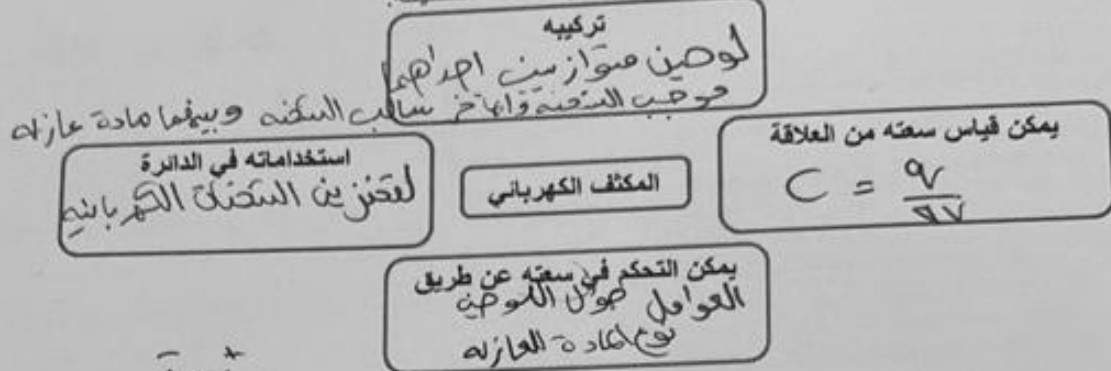 تركيبه
لوحين متوازيين احداهما
موجب الشحنه والاخر سالب الشحنه وبينهما مادة عازله
يمكن قياس سعته من العلاقة
C = q / ΔV
استخداماته في الدائرة
لتخزين الشحنات الكهربائيه
المكثف الكهربائي
يمكن التحكم في سعته عن طريق
العوامل حول اللوحين
نوع المادة العازله
- +